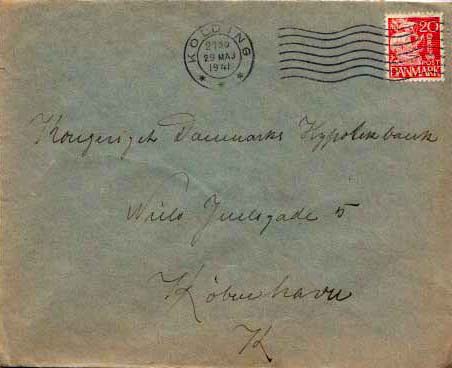 KOLDING
29 MAJ
1941
20
ØRE
POST
DANMARK
Kongeriget Danmarks Hypotekbank
Niels Juelsgade 5
København
K